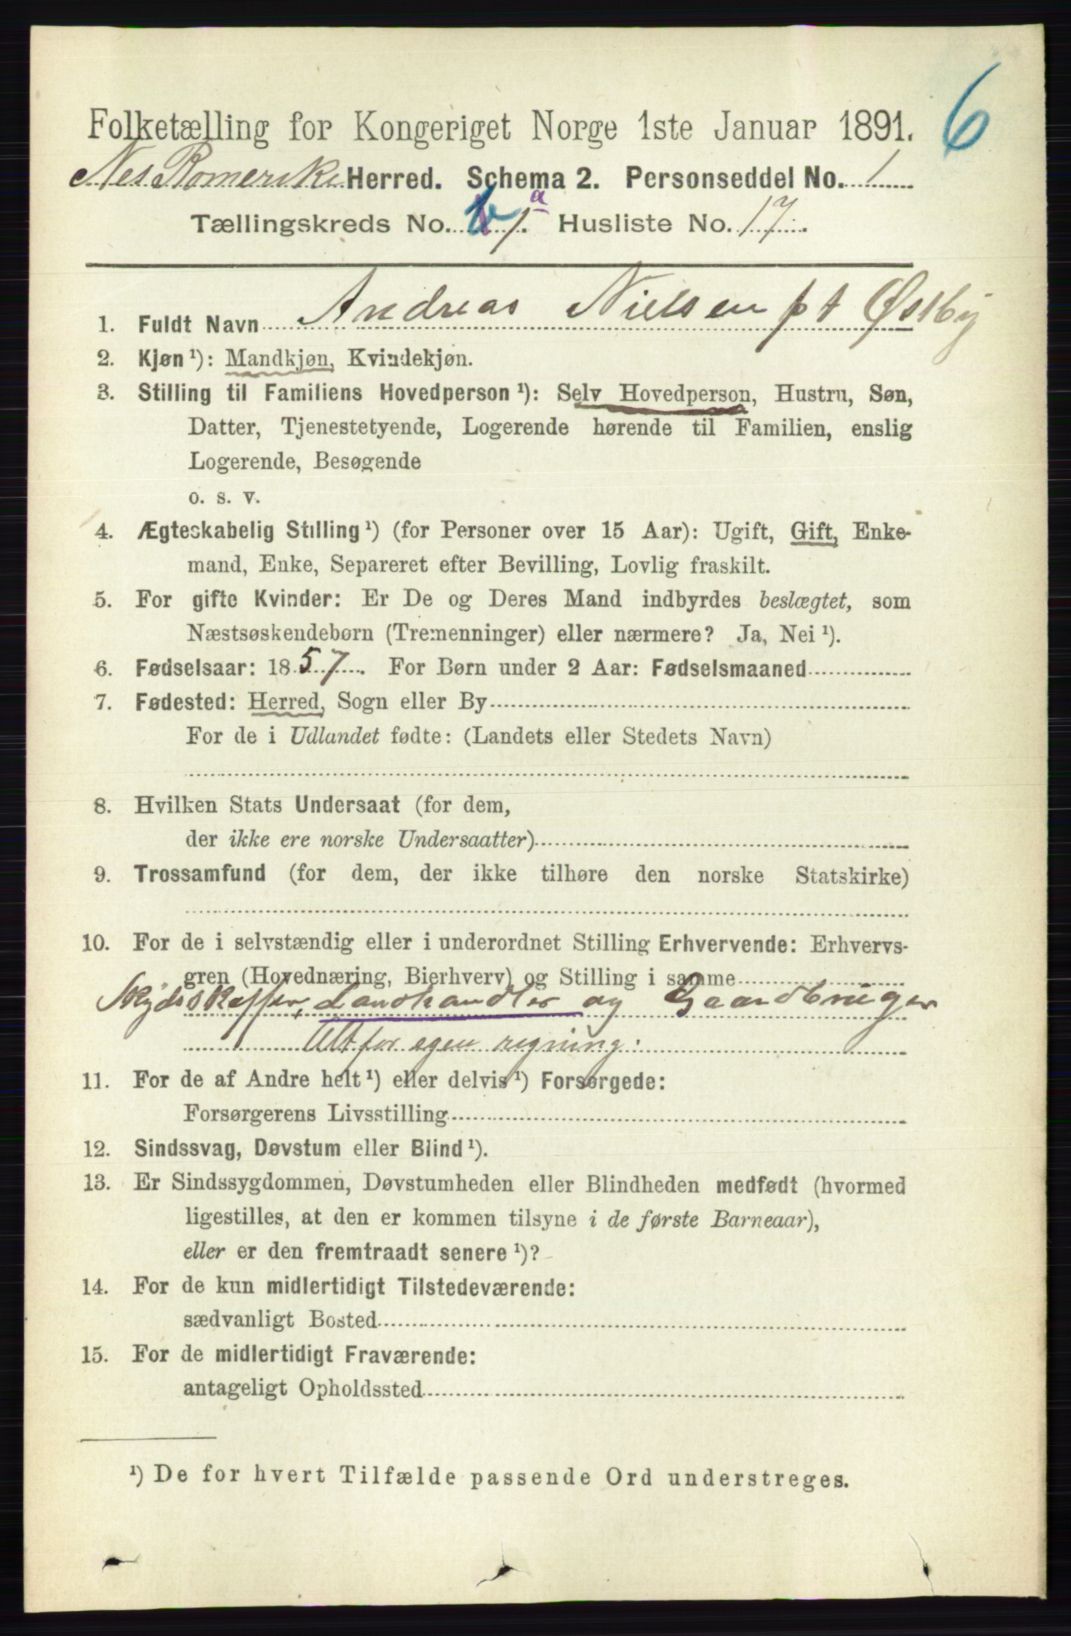 6
Folketælling for Kongeriget Norge 1ste Januar 1891.
Nes Romerike Herred. Schema 2. Personseddel No. 1
Tællingskreds No. 1. a Husliste No. 17.
1. Fuldt Navn Andreas Nielsen pt Østby
2. Kjøn ¹): Mandkjøn, Kvindekjøn.
3. Stilling til Familiens Hovedperson ¹): Selv Hovedperson, Hustru, Søn,
Datter, Tjenestetyende, Logerende hørende til Familien, enslig
Logerende, Besøgende
o. s. v.
4. Ægteskabelig Stilling ¹) (for Personer over 15 Aar): Ugift, Gift, Enke-
mand, Enke, Separeret efter Bevilling, Lovlig fraskilt.
5. For gifte Kvinder: Er De og Deres Mand indbyrdes beslægtet, som
Næstsøskendebørn (Tremenninger) eller nærmere? Ja, Nei ¹).
6. Fødselsaar: 1857. For Børn under 2 Aar: Fødselsmaaned
7. Fødested: Herred, Sogn eller By
For de i Udlandet fødte: (Landets eller Stedets Navn)
8. Hvilken Stats Undersaat (for dem,
der ikke ere norske Undersaatter)
9. Trossamfund (for dem, der ikke tilhøre den norske Statskirke)
10. For de i selvstændig eller i underordnet Stilling Erhvervende: Erhvervs-
gren (Hovednæring, Bierhverv) og Stilling i samme
Skydsskaffer, Landhandler og Gaardbruger
Alt for egen regning.
11. For de af Andre helt ¹) eller delvis ¹) Forsørgede:
Forsørgerens Livsstilling
12. Sindssvag, Døvstum eller Blind ¹).
13. Er Sindssygdommen, Døvstumheden eller Blindheden medfødt (hvormed
ligestilles, at den er kommen tilsyne i de første Barneaar),
eller er den fremtraadt senere ¹)?
14. For de kun midlertidigt Tilstedeværende:
sædvanligt Bosted
15. For de midlertidigt Fraværende:
antageligt Opholdssted
¹) De for hvert Tilfælde passende Ord understreges.